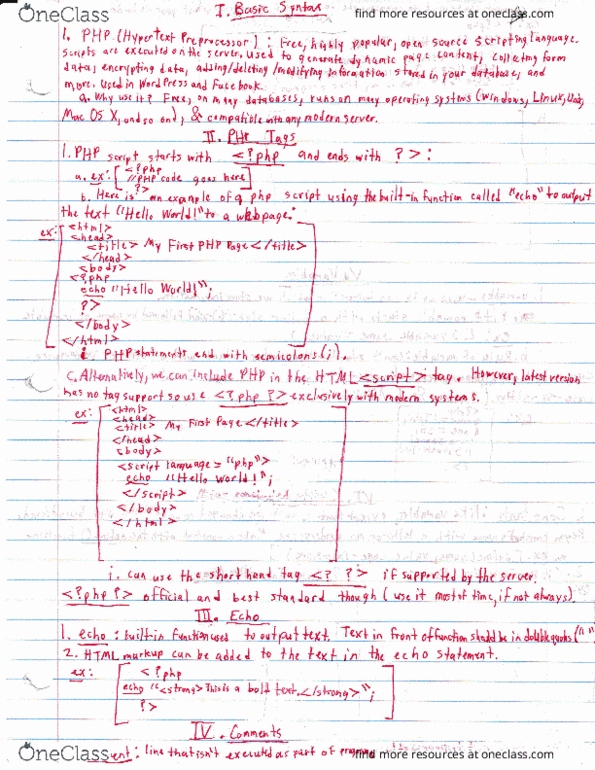 OneClass
find more resources at oneclass.com
I. Basic Syntax
1. PHP (Hypertext Preprocessor) : Free, highly popular, open source scripting language.
scripts are executed on the server. used to generate dynamic page content, collecting form
data, encrypting data, adding/deleting/modifying information stored in your database, and
more. Used in WordPress and Facebook.
a. Why use it? Free, on many databases, runs on many operating systems (Windows, Linux, Unix,
Mac OS X, and so on), & compatible with any modern server.
II. PHP Tags
1. PHP script starts with <?php and ends with ?> :
a. ex: <?php
//PHP code goes here
?>
b. Here is an example of a php script using the built-in function called "echo" to output
the text "Hello World!" to a webpage:
ex: <html>
<head>
<title> My First PHP Page </title>
</head>
<body>
<?php
echo "Hello World!";
?>
</body>
</html>
i. PHP statements end with semicolons (;).
c. Alternatively, we can include PHP in the HTML <script> tag. However, latest version
has no tag support so use <?php ?> exclusively with modern systems.
ex: <html>
<head>
<title> My First Page </title>
</head>
<body>
<script language = "php">
echo "Hello World!";
</script>
</body>
</html>
i. can use the shorthand tag <? ?> if supported by the server.
<?php ?> official and best standard though (use it most of time, if not always).
III. Echo
1. echo : built-in function used to output text. Text in front of function should be in double quotes (" ")
2. HTML markup can be added to the text in the echo statement.
ex: <?php
echo "<strong> This is a bold text. </strong>";
?>
IV. Comments
OneClass
ent : line that isn't executed as part of
find more resources at oneclass.com